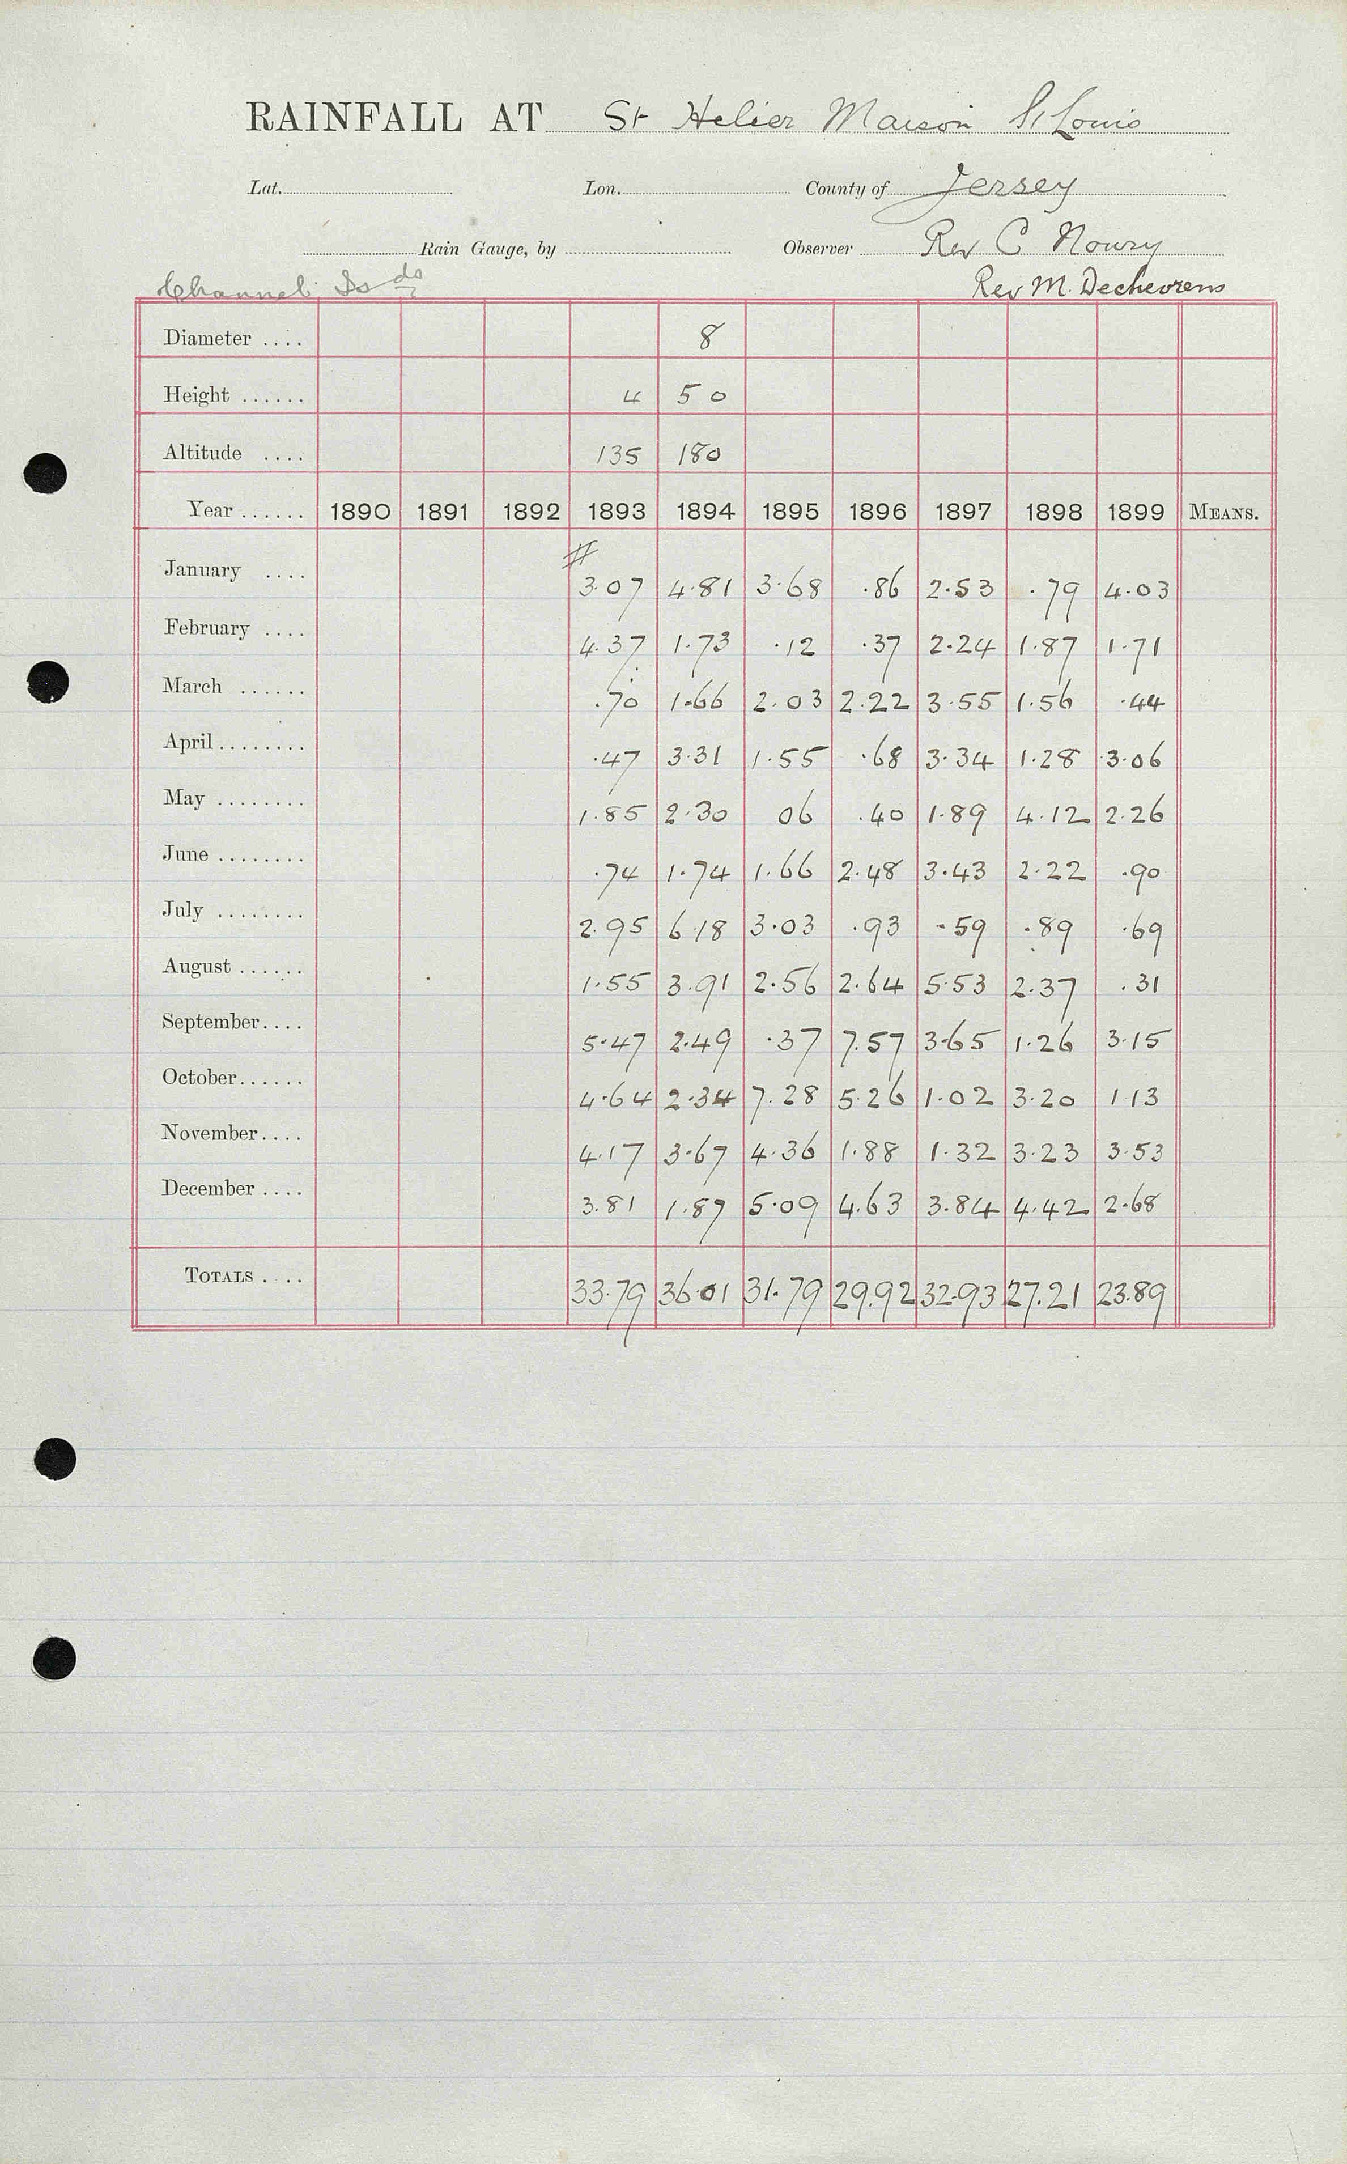 RAINFALL AT St Helier Maison St Louis
Lat. Lon. County of Jersey
Rain Gauge, by Observer Rev C Noury
Channel Isds Rev M. Dechevrens
Diameter .... 8
Height ...... 4 5 0
Altitude .... 135 180
Year ...... 1890 1891 1892 1893 1894 1895 1896 1897 1898 1899 MEANS.
#
January .... 3.07 4.81 3.68 .86 2.53 .79 4.03
February .... 4.37 1.73 .12 .37 2.24 1.87 1.71
March ...... .70 1.66 2.03 2.22 3.55 1.56 .44
April ........ .47 3.31 1.55 .68 3.34 1.28 3.06
May ........ 1.85 2.30 06 .40 1.89 4.12 2.26
June ........ .74 1.74 1.66 2.48 3.43 2.22 .90
July ........ 2.95 6.18 3.03 .93 .59 .89 .69
August ...... 1.55 3.91 2.56 2.64 5.53 2.37 .31
September.... 5.47 2.49 .37 7.57 3.65 1.26 3.15
October...... 4.64 2.34 7.28 5.26 1.02 3.20 1.13
November.... 4.17 3.67 4.36 1.88 1.32 3.23 3.53
December .... 3.81 1.87 5.09 4.63 3.84 4.42 2.68
TOTALS .... 33.79 36.01 31.79 29.92 32.93 27.21 23.89